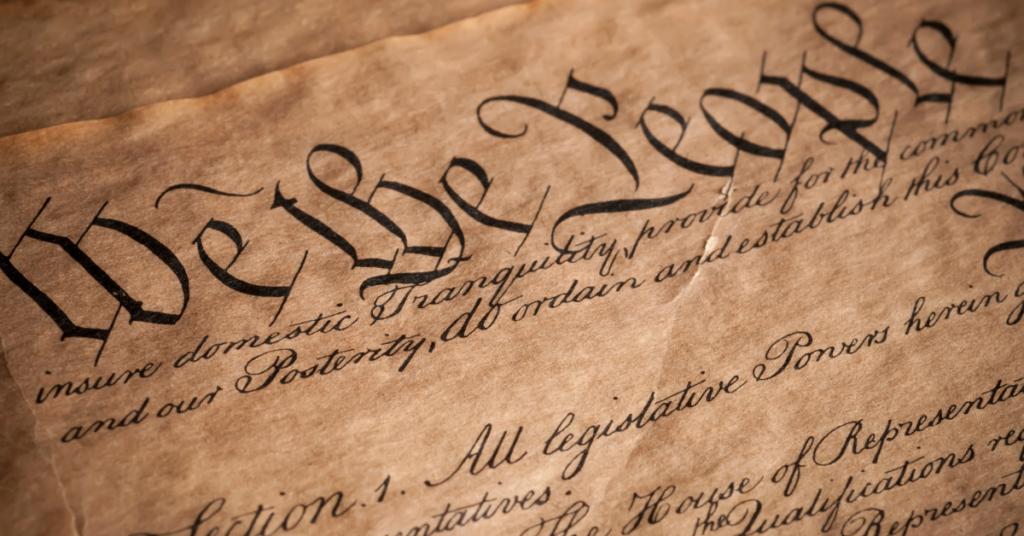 We the People
insure domestic Tranquility, provide for the common
and our Posterity, do ordain and establish this Co
Section. 1. All legislative Powers herein g
entatives.
The House of Representa
the Qualifications req
Represent